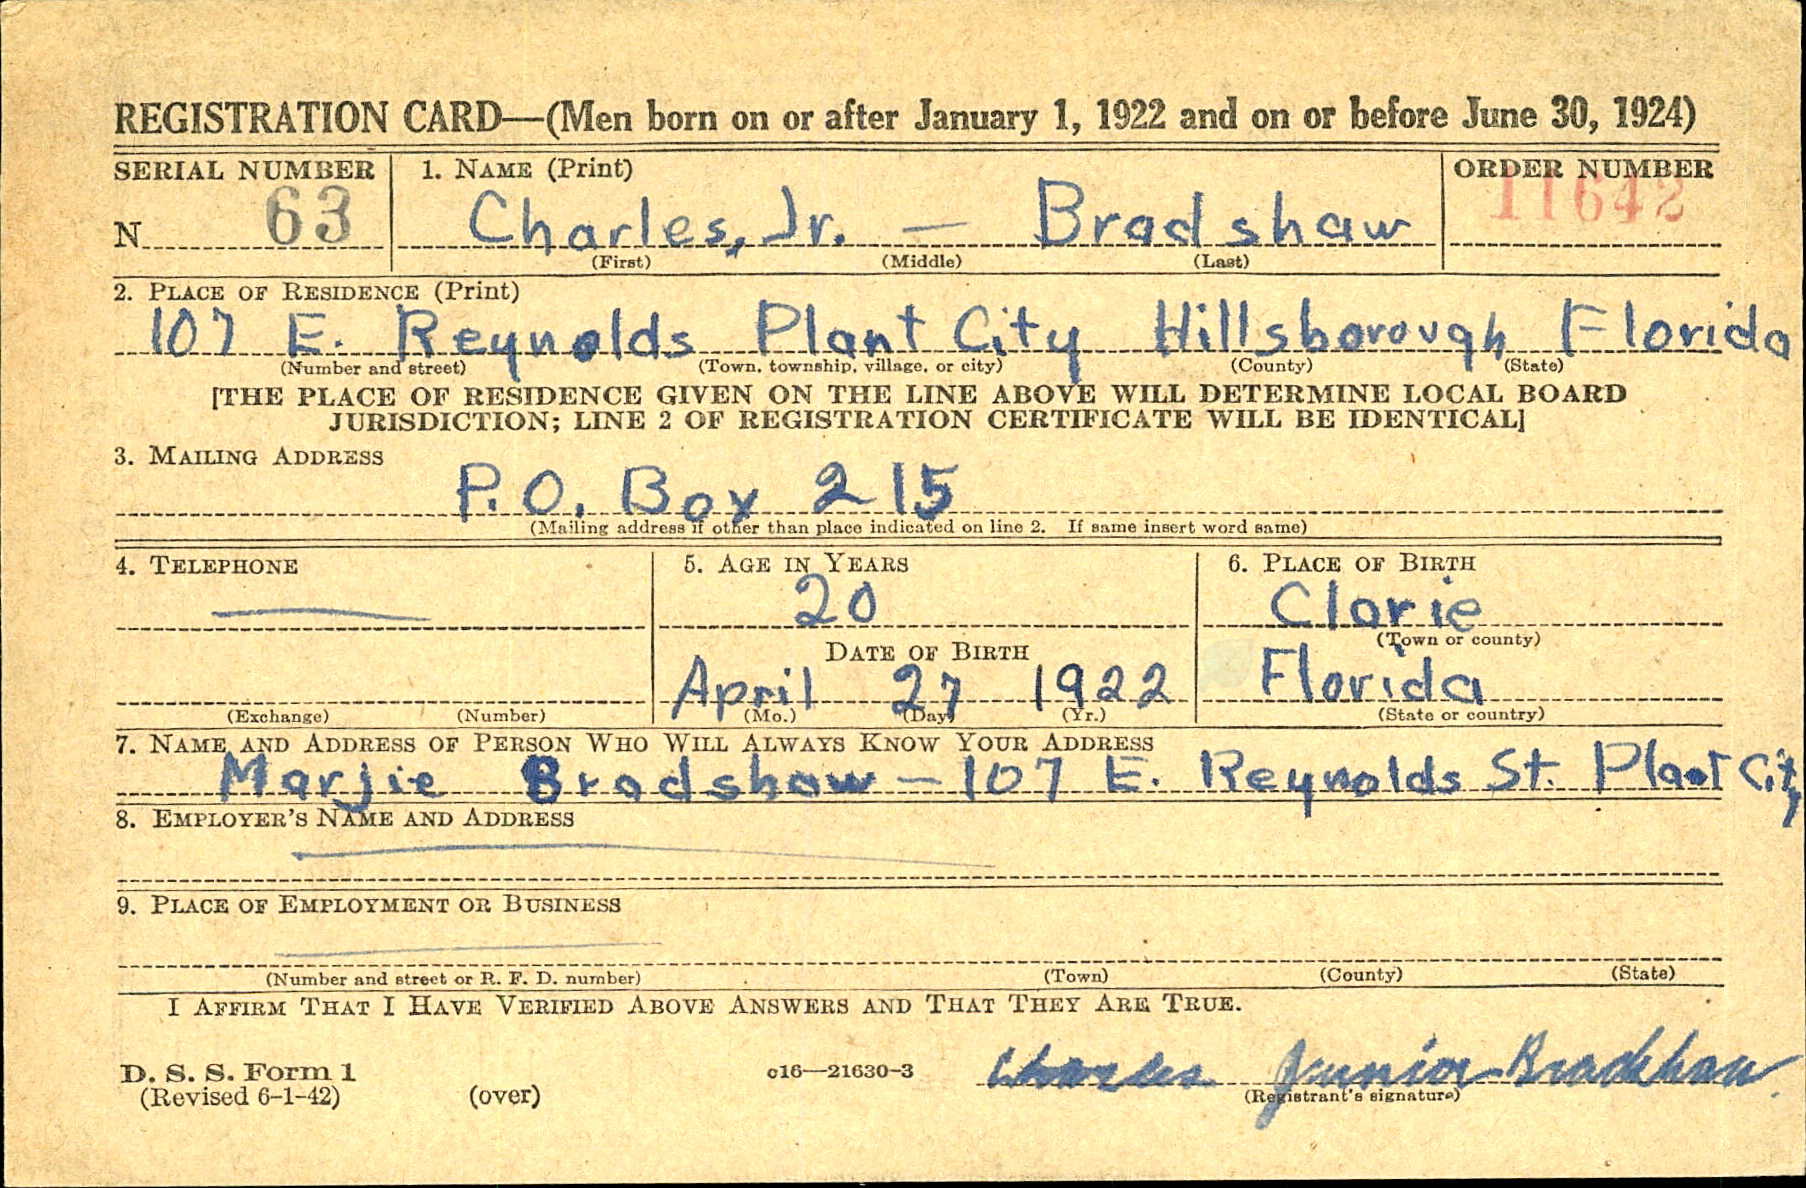 REGISTRATION CARD—(Men born on or after January 1, 1922 and on or before June 30, 1924)
SERIAL NUMBER 1. NAME (Print) ORDER NUMBER
N 63 Charles, Jr. — Bradshaw 11642
(First) (Middle) (Last)
2. PLACE OF RESIDENCE (Print)
107 E. Reynolds Plant City Hillsborough Florida
(Number and street) (Town, township, village, or city) (County) (State)
[THE PLACE OF RESIDENCE GIVEN ON THE LINE ABOVE WILL DETERMINE LOCAL BOARD
JURISDICTION; LINE 2 OF REGISTRATION CERTIFICATE WILL BE IDENTICAL]
3. MAILING ADDRESS
P.O. Box 215
(Mailing address if other than place indicated on line 2. If same insert word same)
4. TELEPHONE 5. AGE IN YEARS 6. PLACE OF BIRTH
20 Clorie
(Town or county)
DATE OF BIRTH
April 27 1922 Florida
(Exchange) (Number) (Mo.) (Day) (Yr.) (State or country)
7. NAME AND ADDRESS OF PERSON WHO WILL ALWAYS KNOW YOUR ADDRESS
Marjie Bradshaw — 107 E. Reynolds St. Plant City
8. EMPLOYER'S NAME AND ADDRESS
9. PLACE OF EMPLOYMENT OR BUSINESS
(Number and street or R. F. D. number) (Town) (County) (State)
I AFFIRM THAT I HAVE VERIFIED ABOVE ANSWERS AND THAT THEY ARE TRUE.
D. S. S. Form 1 c16—21630-3 Charles Junior Bradshaw
(Revised 6-1-42) (over) (Registrant's signature)